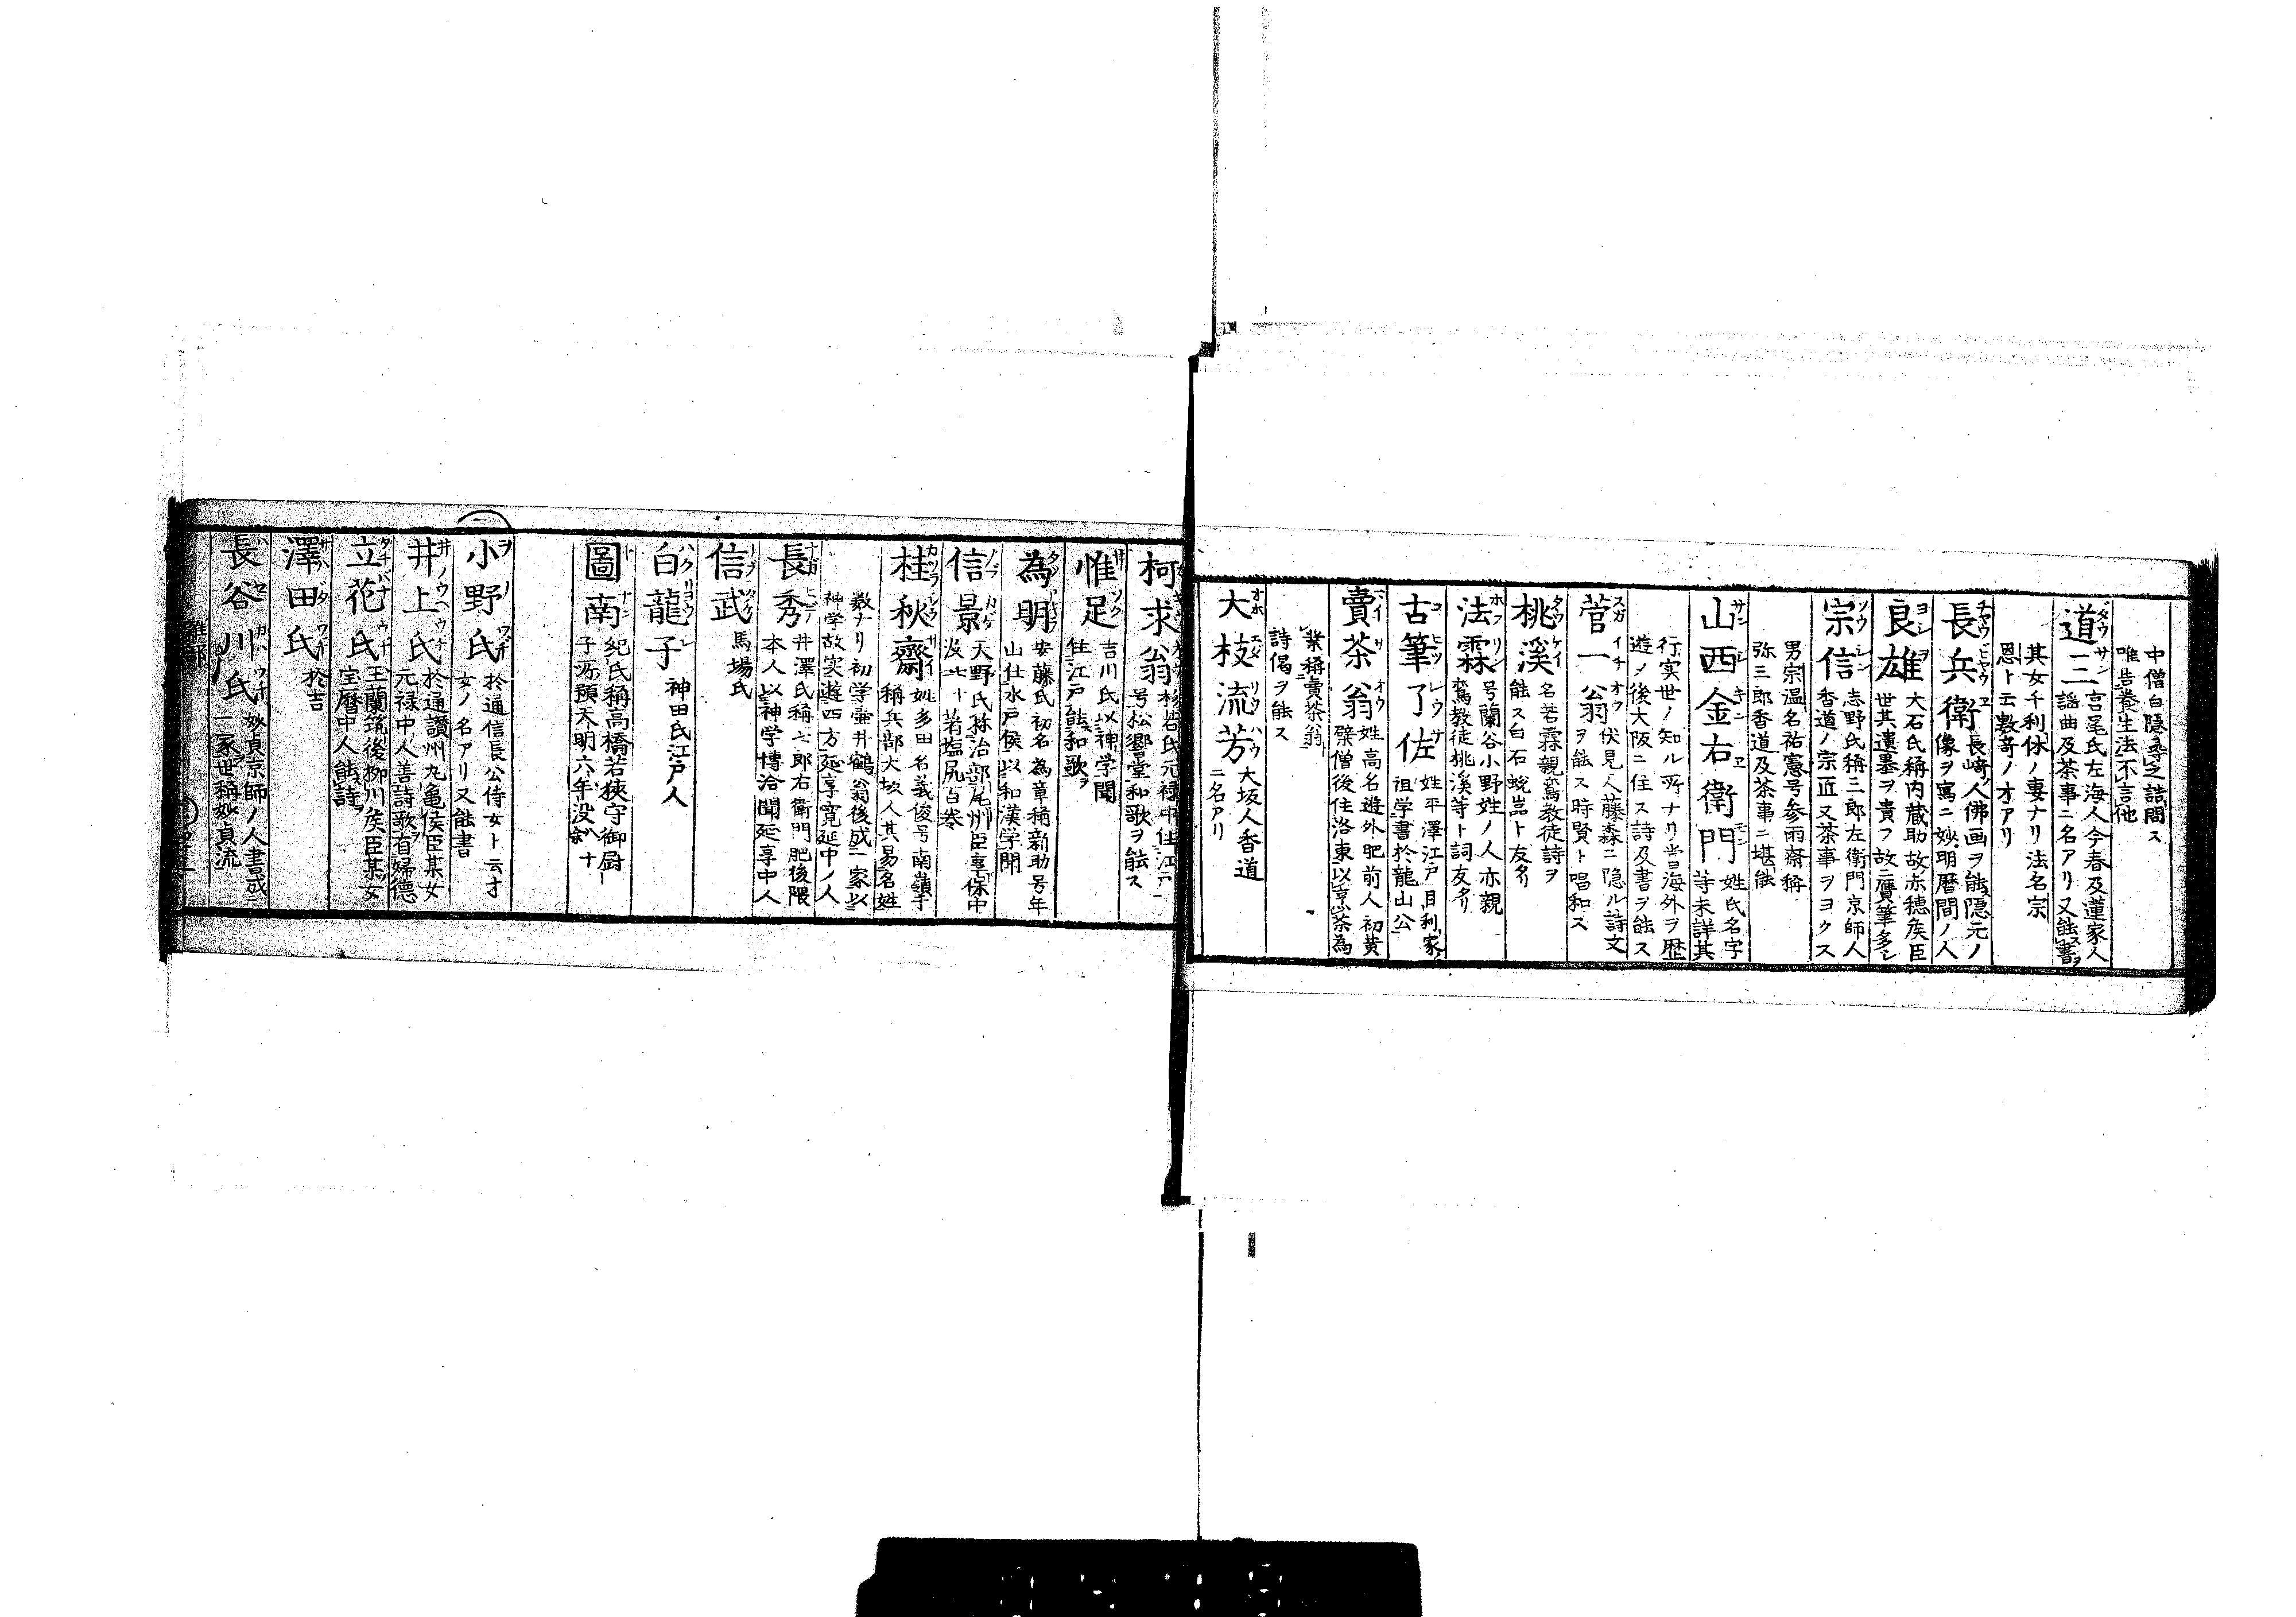 中僧白隠尋之詰問ス
唯告養生法不言他
道三 宮尾氏左海人今春及蓮家人
謡曲及茶事ニ名アリ又能書ヲ
其女千利休ノ妻ナリ法名宗
恩ト云数奇ノオアリ
長兵衛 長崎ノ人佛画ヲ能隠元ノ
像ヲ寫ニ妙明暦間ノ人
良雄 大石氏稱内蔵助故赤穂矦臣
世其遺墨ヲ貴フ故ニ贋筆多シ
宗信 志野氏稱三郎左衛門京師人
香道ノ宗匠又茶事ヲヨクス
男宗温名祐憲号参雨齋稱
弥三郎香道及茶事ニ堪能
山西金右衛門 姓氏名字
等未詳其
行実世ノ知ル所ナリ嘗海外ヲ歴
遊ノ後大阪ニ住ス詩及書ヲ能ス
菅一翁 伏見人藤森ニ隠ル詩文
ヲ能ス時賢ト唱和ス
桃溪 名若霖親鸞教徒詩ヲ
能ス白石蛻岩ト友タリ
法霖 号蘭谷小野姓ノ人亦親
鸞教徒桃溪等ト詞友タリ
古筆了佐 姓平澤江戸目利家ノ
祖学書於龍山公
賣茶翁 姓高名遊外肥前人初黄
檗僧後住洛東以烹茶為
業稱賣茶翁
詩偈ヲ能ス
大枝流芳 大坂人香道
ニ名アリ
柯求翁 氏元禄中住江戸
号松響堂和歌ヲ能ス
惟足 吉川氏以神学聞
住江戸能和歌ヲ
為明 安藤氏初名為章稱新助号年
山仕水戸侯以和漢学聞
信景 天野氏稱治部尾州臣享保中
没七十著塩尻百巻
桂秋齋 姓多田名義俊号南嶺子
稱兵部大坂人其易名姓
数ナリ初学壷井鶴翁後成一家以
神学故実遊四方延享寛延中ノ人
長秀 井澤氏稱七郎右衛門肥後隈
本人以神学博洽聞延享中人
信武 馬場氏
白龍子 神田氏江戸人
圖南 紀氏稱高橋若狭守御厨
子所預天明六年没ス八十
小野氏 於通信長公侍女ト云才
女ノ名アリ又能書
井上氏 於通讃州丸亀侯臣某女
元禄中人善詩歌ヲ有婦徳
立花氏 玉蘭筑後柳川矦臣某女
宝暦中人能詩ヲ
澤田氏 於吉
長谷川氏 妙貞京師ノ人書成ニ
一家ヲ世稱妙貞流
雜部